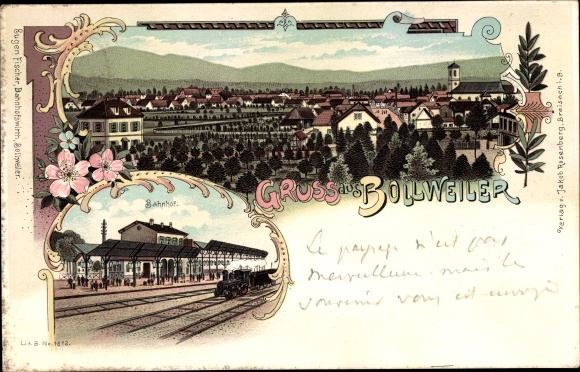 Eugen Fischer, Bahnhofswirth, Bollweiler.
GRUSS aus BOLLWEILER
Verlag v. Jakob Rosenberg, Breisach i. B.
Bahnhof.
Le paysage n'est pas
merveilleux mais le
souvenir vous est envoyé
Lit. B. No. 1612.